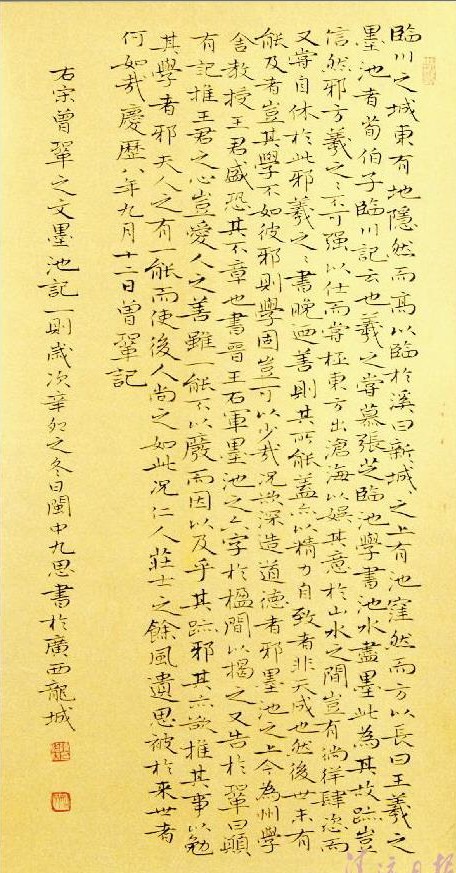 臨川之城東有地隱然而高以臨於溪曰新城之上有池窪然而方以長曰王羲之
墨池者荀伯子臨川記云也羲之嘗慕張芝臨池學書池水盡墨此為其故跡豈
信然邪方羲之之不可强以仕而嘗極東方出滄海以娛其意於山水之間豈有徜徉肆恣而
又嘗自休於此邪羲之之書晚迺善則其所能蓋亦以精力自致者非天成也然後世未有
能及者豈其學不如彼邪則學固豈可以少哉况欲深造道德者邪墨池之上今為州學
舍教授王君盛恐其不章也書晉王右軍墨池之六字於楹間以揭之又告於鞏曰願
有記推王君之心豈愛人之善雖一能不以廢而因以及乎其跡邪其亦欲推其事以勉
其學者邪夫人之有一能而使後人尚之如此况仁人莊士之餘風遺思被於來世者
何如哉慶歷八年九月十二日曾鞏記
右宋曾鞏之文墨池記一則歲次辛卯之冬日閩中九思書於廣西龍城